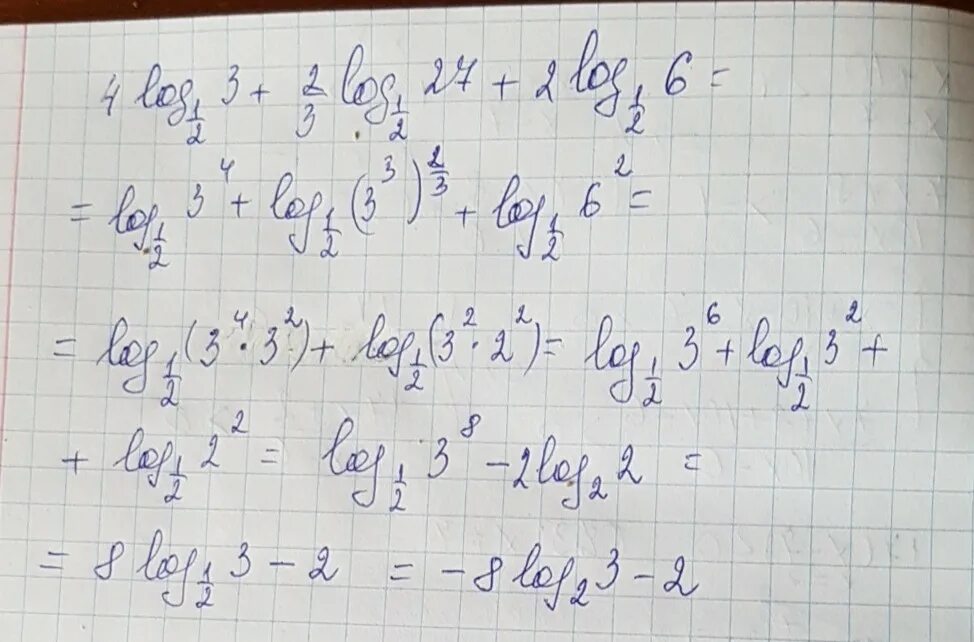 4 log_{1/2} 3 + 2/3 log_{1/2} 27 + 2 log_{1/2} 6 =
= log_{1/2} 3^4 + log_{1/2} (3^3)^{2/3} + log_{1/2} 6^2 =
= log_{1/2} (3^4 · 3^2) + log_{1/2} (3^2 · 2^2) = log_{1/2} 3^6 + log_{1/2} 3^2 +
+ log_{1/2} 2^2 = log_{1/2} 3^8 - 2 log_2 2 =
= 8 log_{1/2} 3 - 2 = -8 log_2 3 - 2